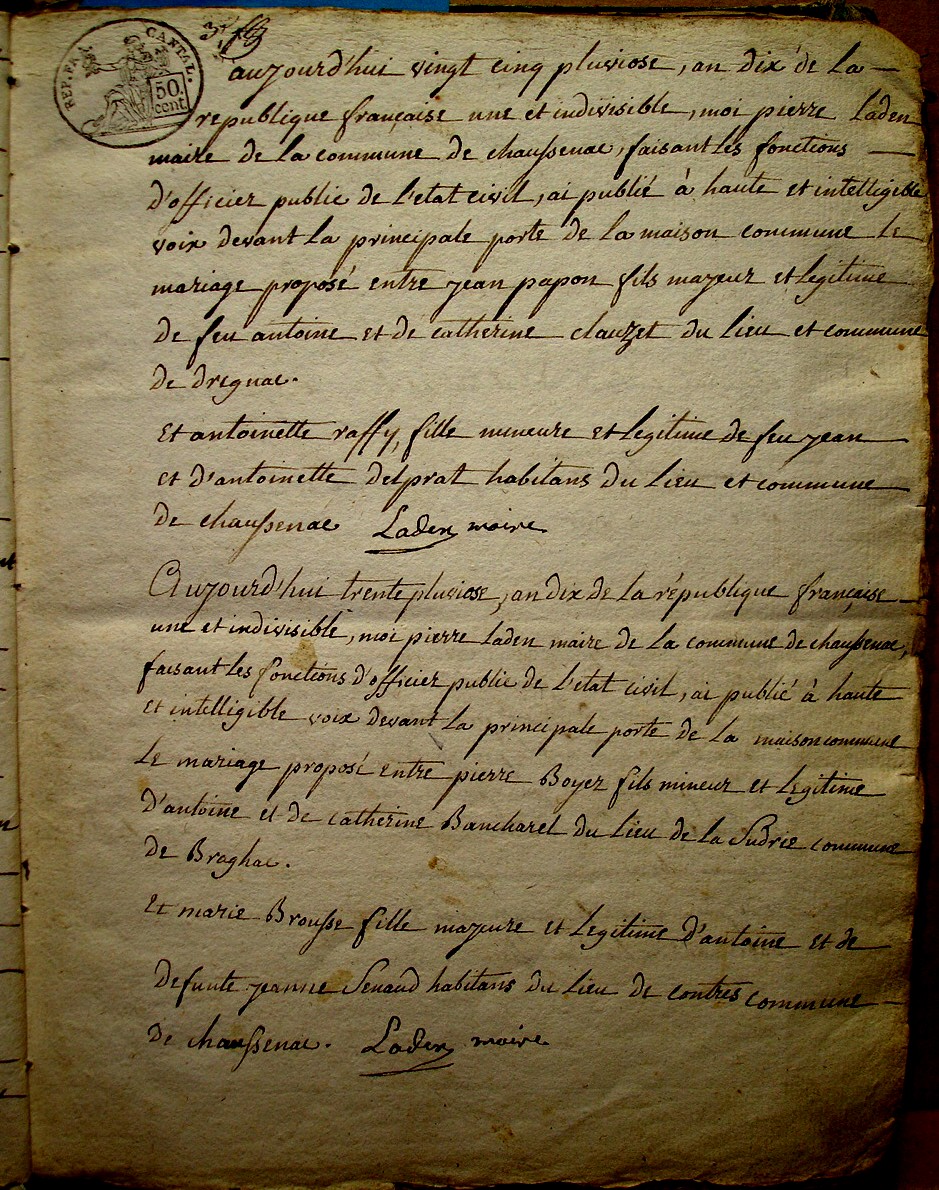 REP. FRA. CANTAL.
50. cent
aujourd'hui vingt cinq pluviose, an dix de la
republique française une et indivisible, moi pierre Laden
maire de la commune de chaussenac, faisant les fonctions
d'officier public de l'etat civil, ai publié à haute et intelligible
voix devant la principale porte de la maison commune le
mariage proposé entre jean papon fils majeur et legitime
de feu antoine et de catherine clauzet du lieu et commune
de dregnac.
Et antoinette raffy, fille mineure et legitime de feu jean
et d'antoinette delprat habitans du lieu et commune
de chaussenac Laden maire
Aujourd'hui trente pluviose, an dix de la république française
une et indivisible, moi pierre Laden maire de la commune de chaussenac,
faisant les fonctions d'officier public de l'etat civil, ai publié à haute
et intelligible voix devant la principale porte de la maison commune
le mariage proposé entre pierre Boyer fils mineur et legitime
d'antoine et de catherine Bancharel du lieu de la Sudrie commune
de Braghac.
Et marie Brousse fille majeure et legitime d'antoine et de
defunte jeanne Senaud habitans du lieu de contres commune
de chaussenac. Laden maire